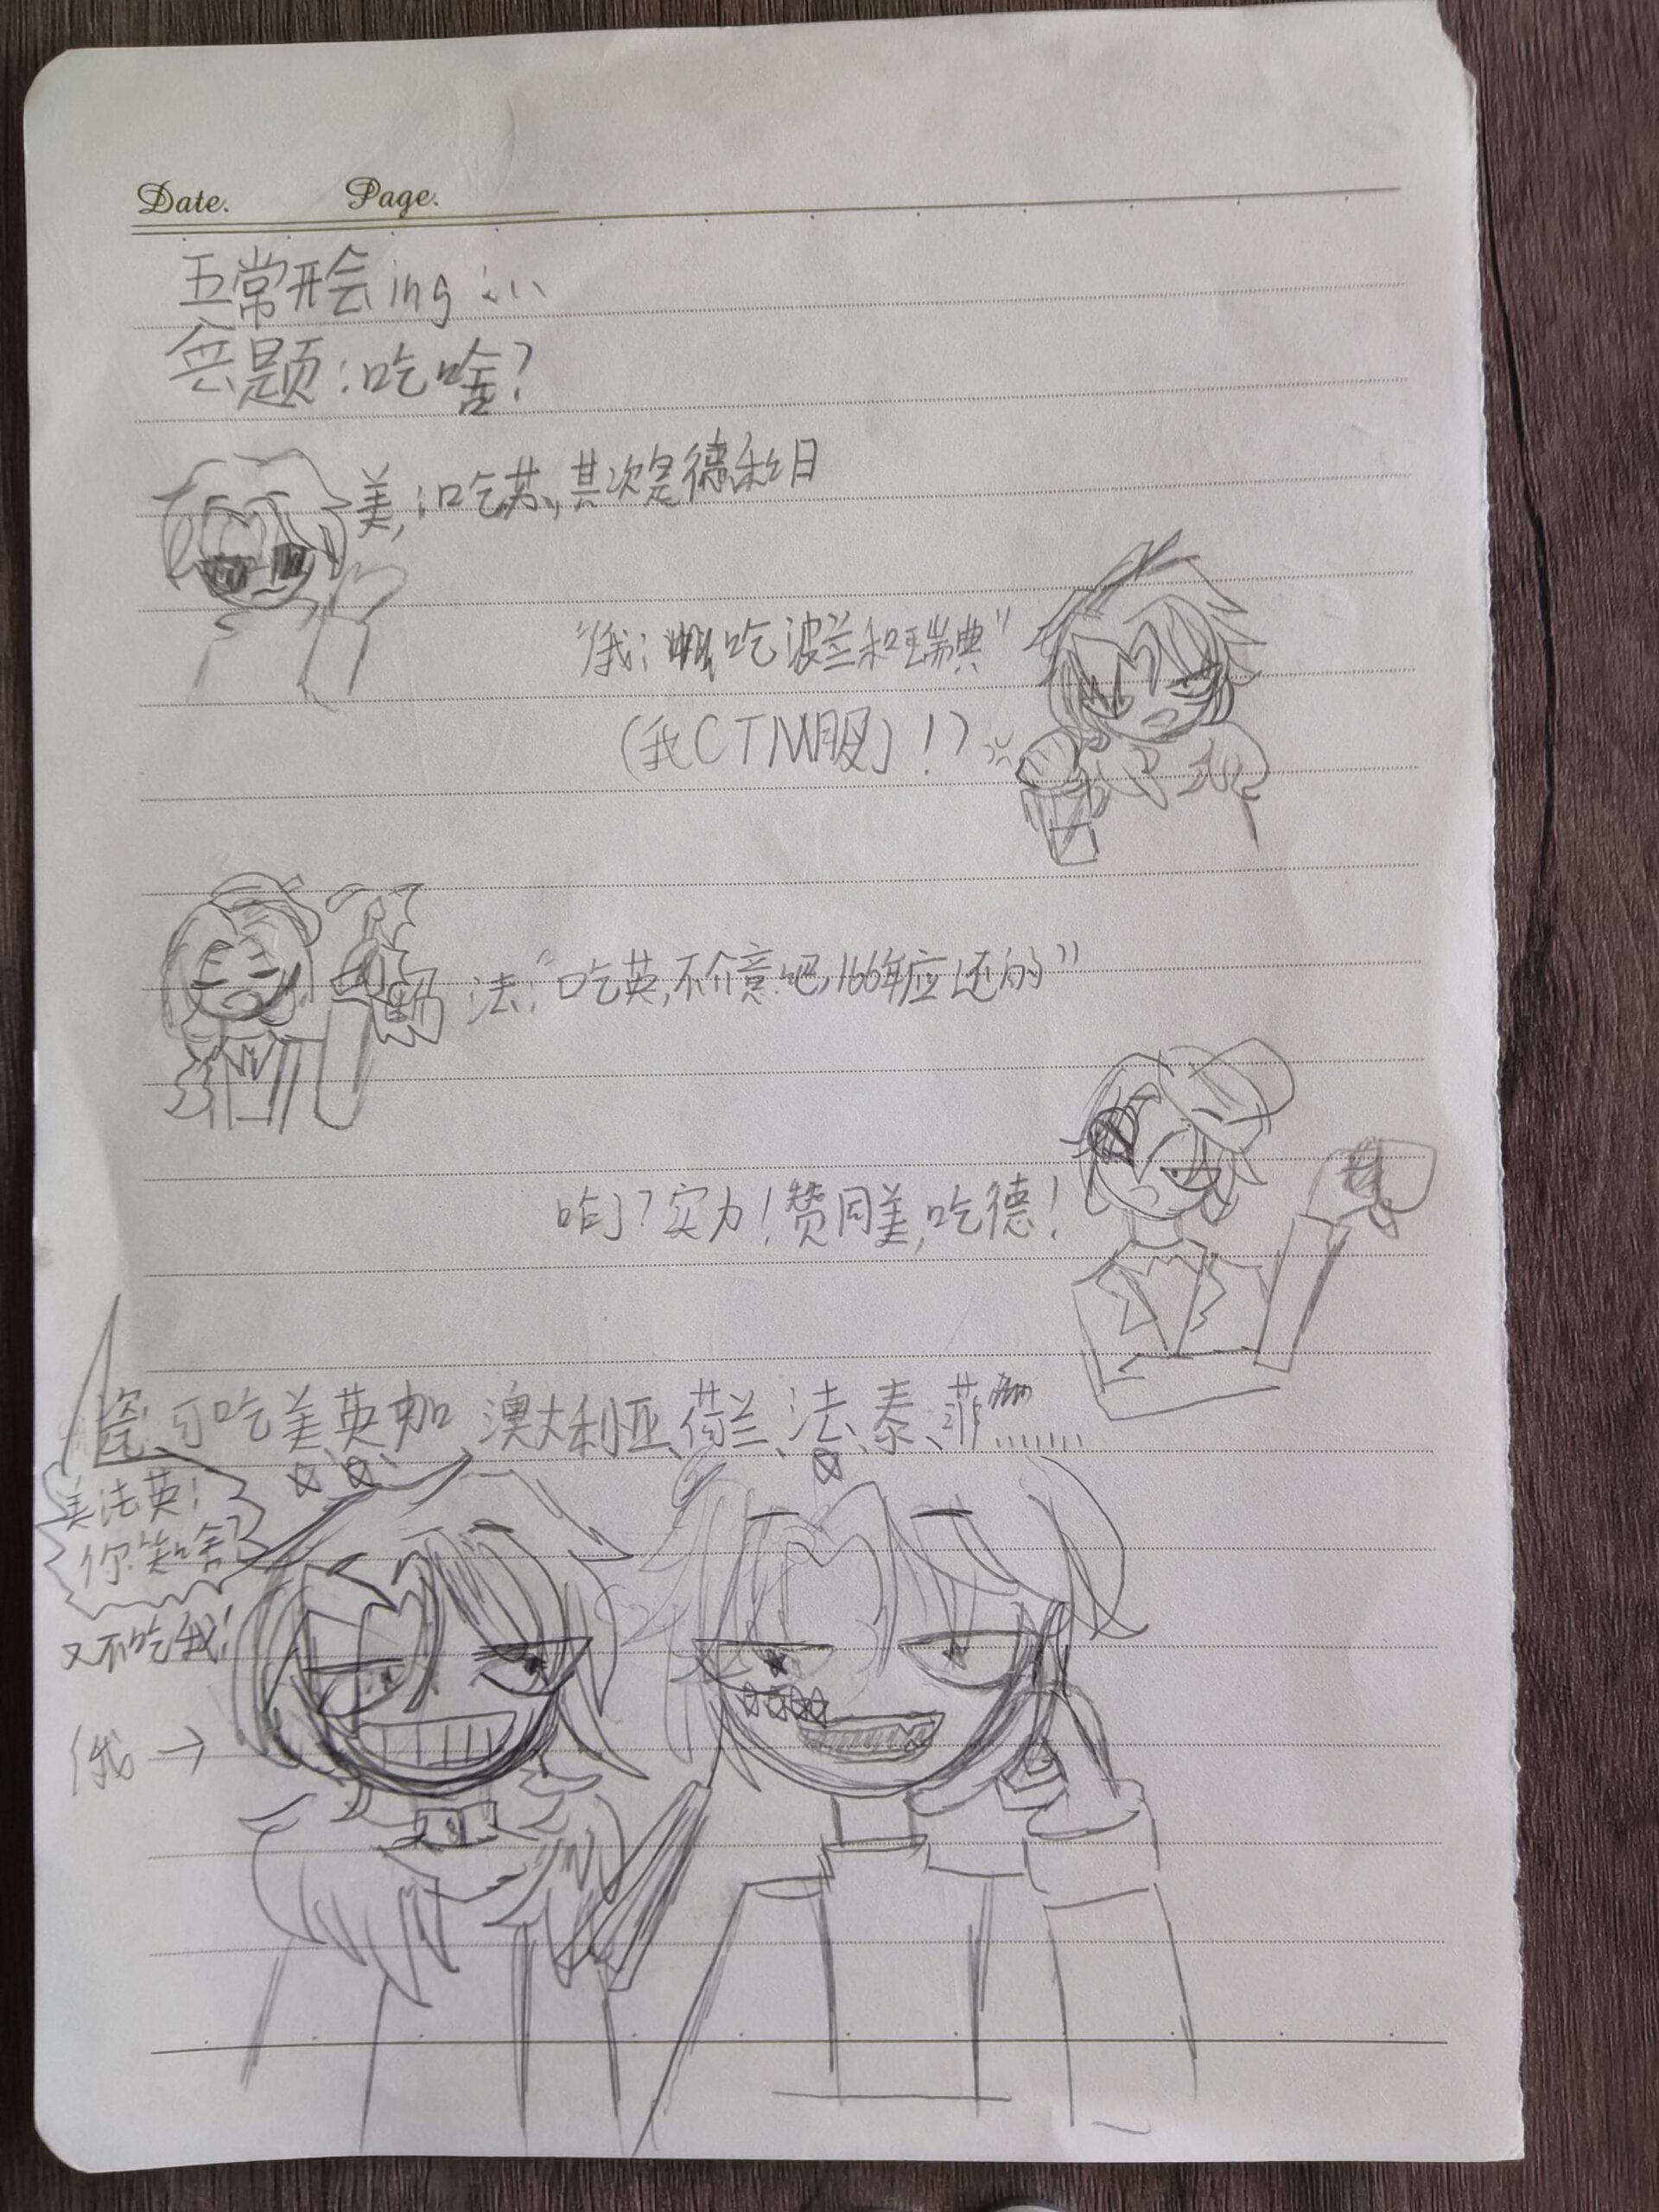 Date. Page.
五常开会ing
会题:吃啥?
美:吃苏,其次是德和日
"俄:吃波兰和瑞典"
(我CTM服)!?
法:"吃英,不介意吧,166年应还的"
咋了?实力!赞同美,吃德!
瓷:可吃美、英、加、澳大利亚、芬兰、法、泰、菲……
美法英:
你笑啥?
又不吃我!
俄→